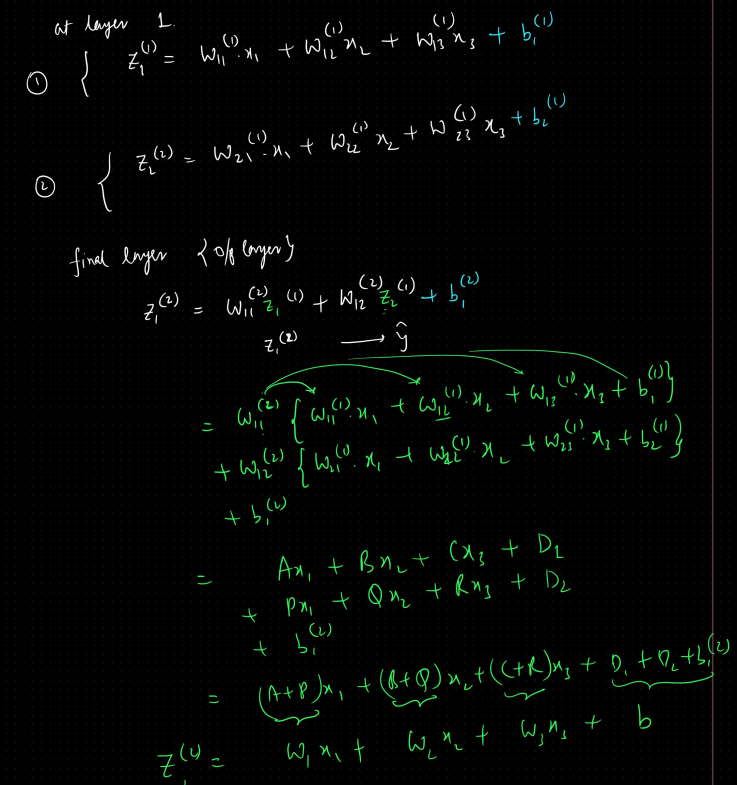 at layer 1.
① { z₁⁽¹⁾ = w₁₁⁽¹⁾·x₁ + w₁₂⁽¹⁾x₂ + w₁₃⁽¹⁾x₃ + b₁⁽¹⁾
② { z₂⁽²⁾ = w₂₁⁽¹⁾·x₁ + w₂₂⁽¹⁾x₂ + w₂₃⁽¹⁾x₃ + b₂⁽¹⁾
final layer {o/p layer}
z₁⁽²⁾ = w₁₁⁽²⁾z₁⁽¹⁾ + w₁₂⁽²⁾z₂⁽¹⁾ + b₁⁽²⁾
z₁⁽²⁾ ⟶ ŷ
= w₁₁⁽²⁾ {w₁₁⁽¹⁾·x₁ + w₁₂⁽¹⁾·x₂ + w₁₃⁽¹⁾·x₃ + b₁⁽¹⁾}
+ w₁₂⁽²⁾ {w₂₁⁽¹⁾·x₁ + w₂₂⁽¹⁾·x₂ + w₂₃⁽¹⁾·x₃ + b₂⁽¹⁾}
+ b₁⁽²⁾
= Ax₁ + Bx₂ + Cx₃ + D₁
+ Px₁ + Qx₂ + Rx₃ + D₂
+ b₁⁽²⁾
= (A+P)x₁ + (B+Q)x₂ + (C+R)x₃ + D₁ + D₂ + b₁⁽²⁾
z₁⁽²⁾ = w₁x₁ + w₂x₂ + w₃x₃ + b